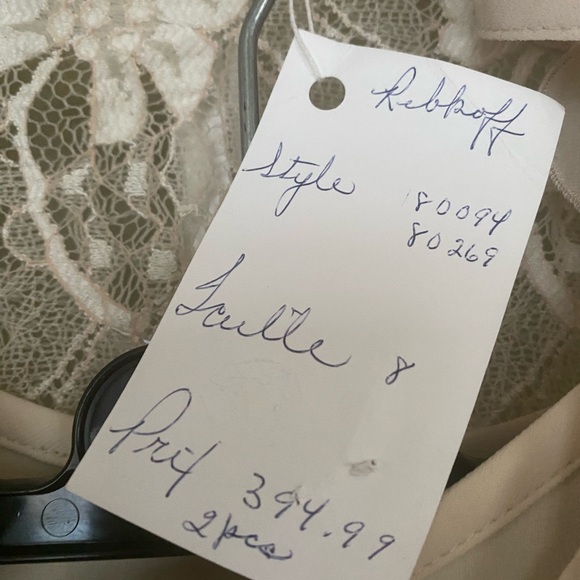 Rebkoff
Style 80094
80269
Taille 8
Prix 394.99
2pcs